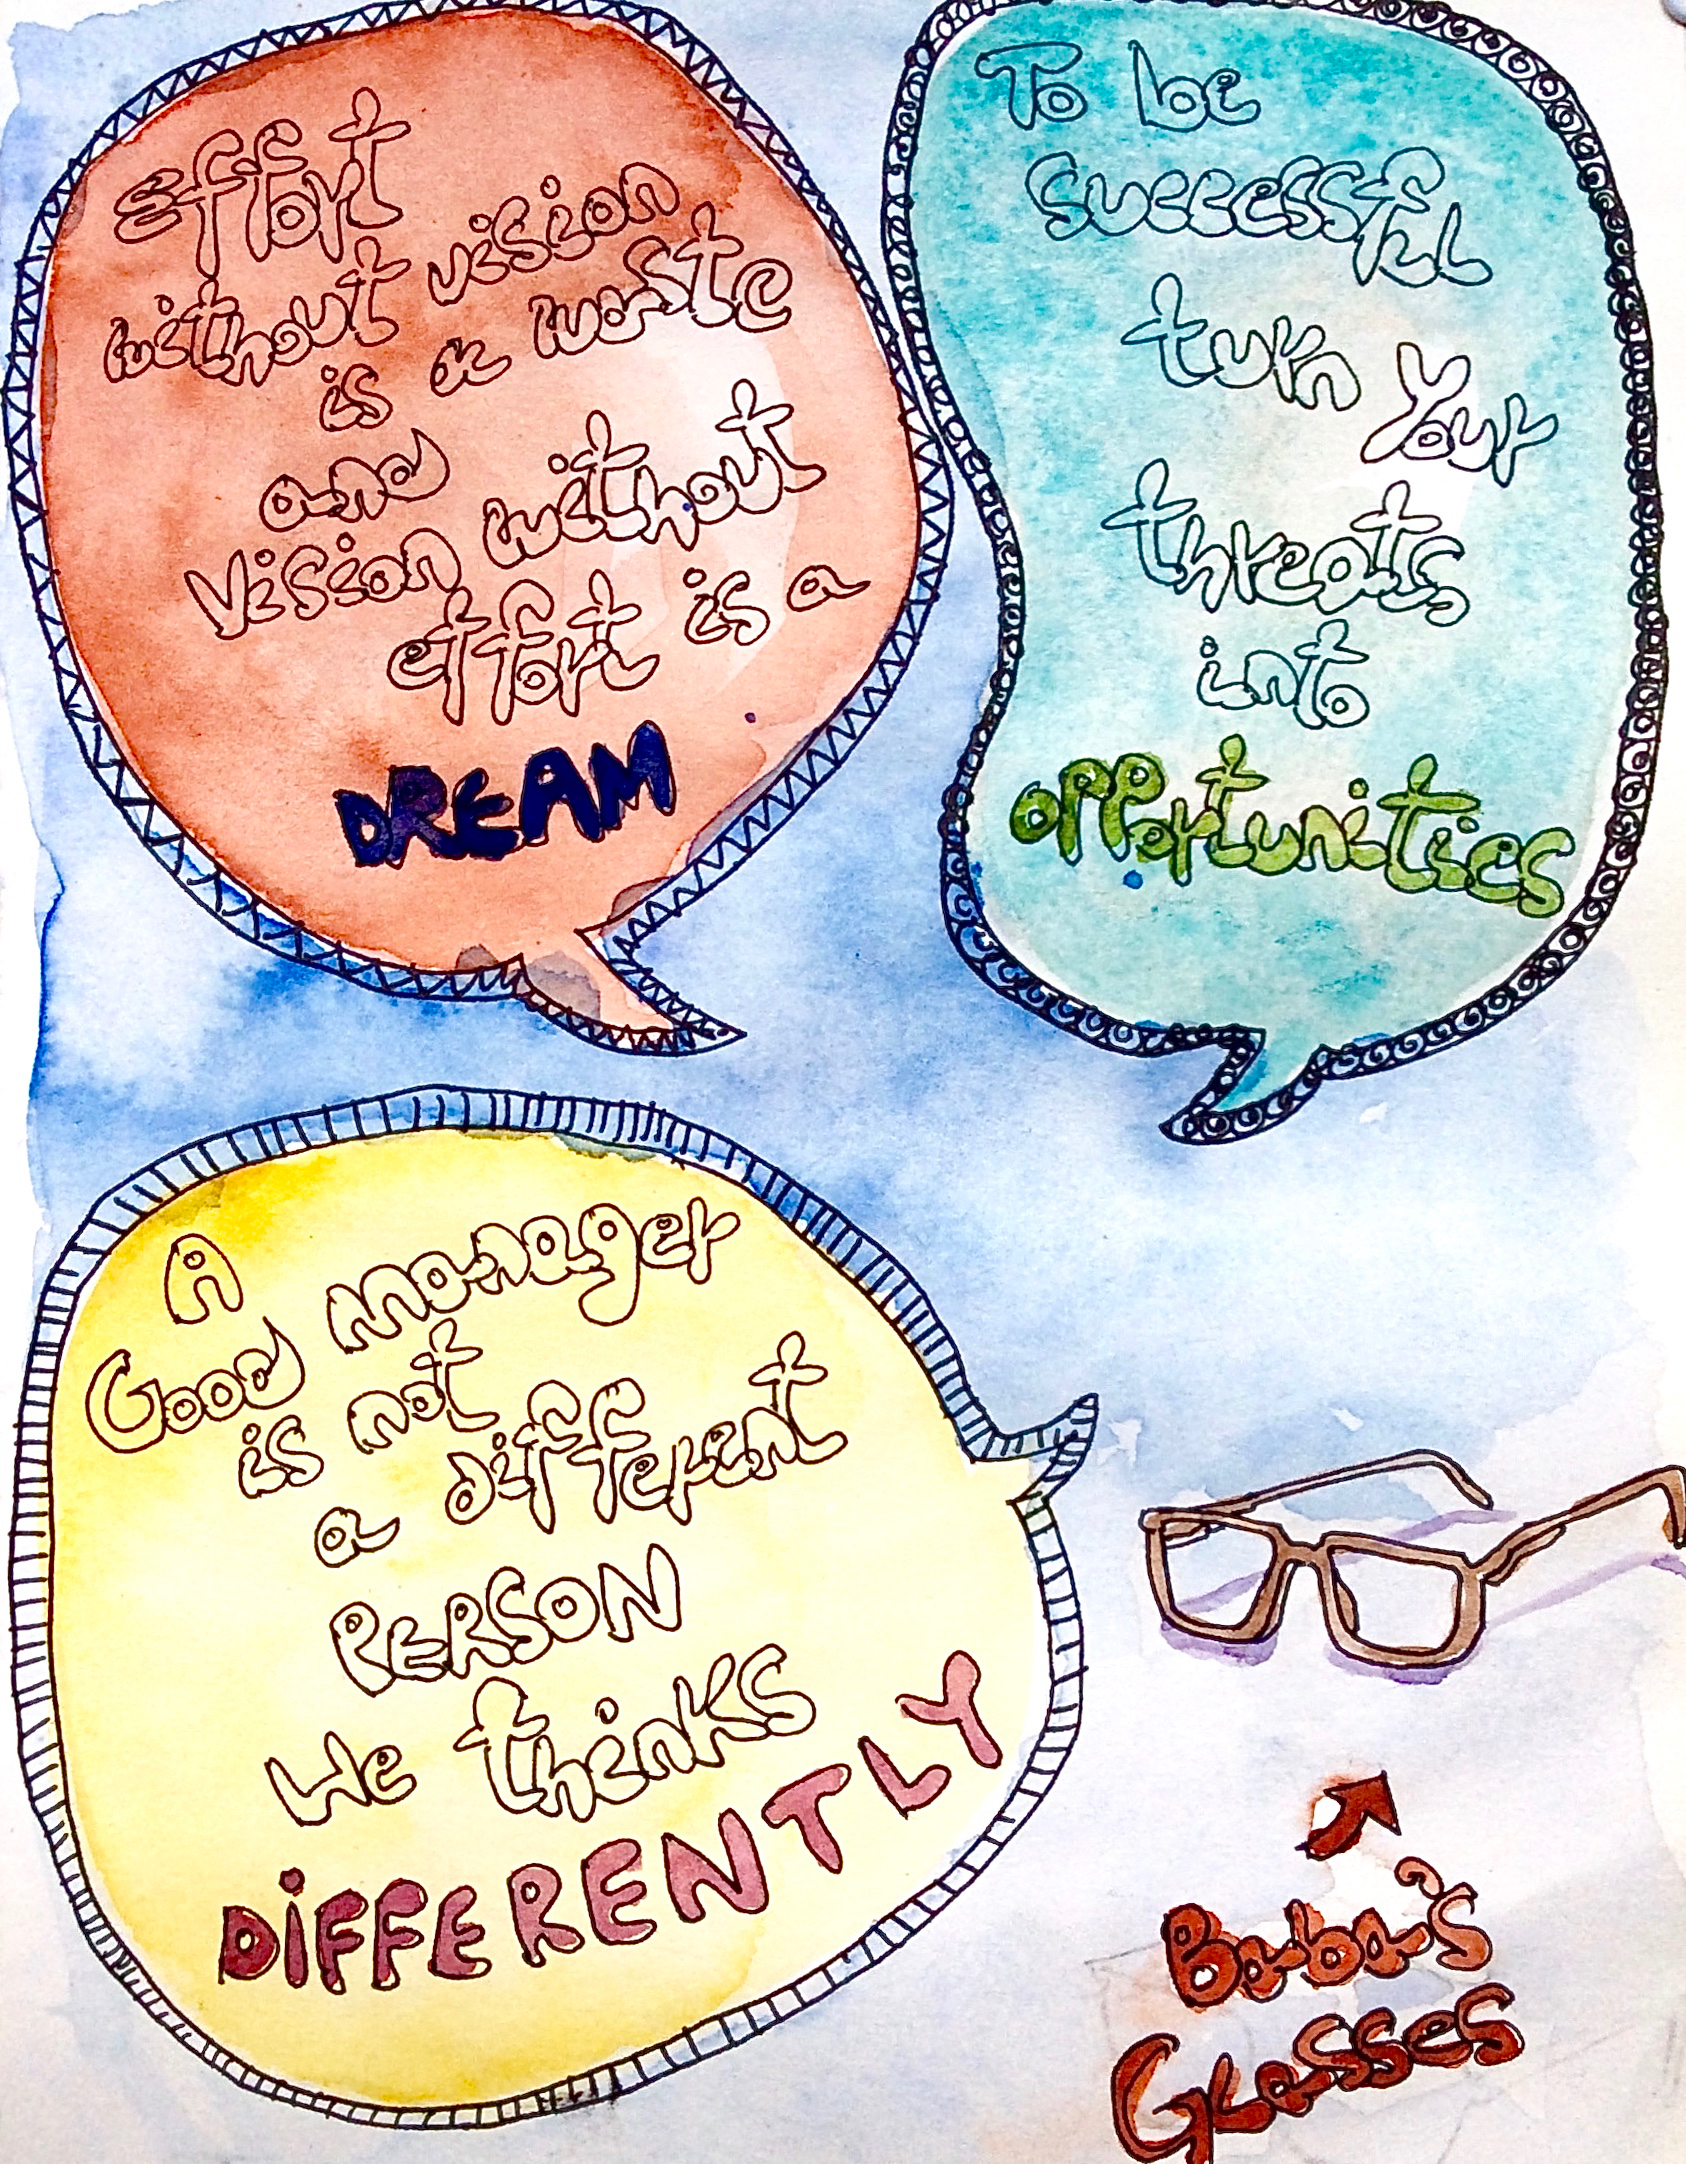 Effort
without vision
is a waste
and
Vision without
effort is a
DREAM
To be
successful
turn Your
threats
into
opportunities
A
Good manager
is not
a different
PERSON
We thinks
DiFFERENTLY
Baba's
Glasses